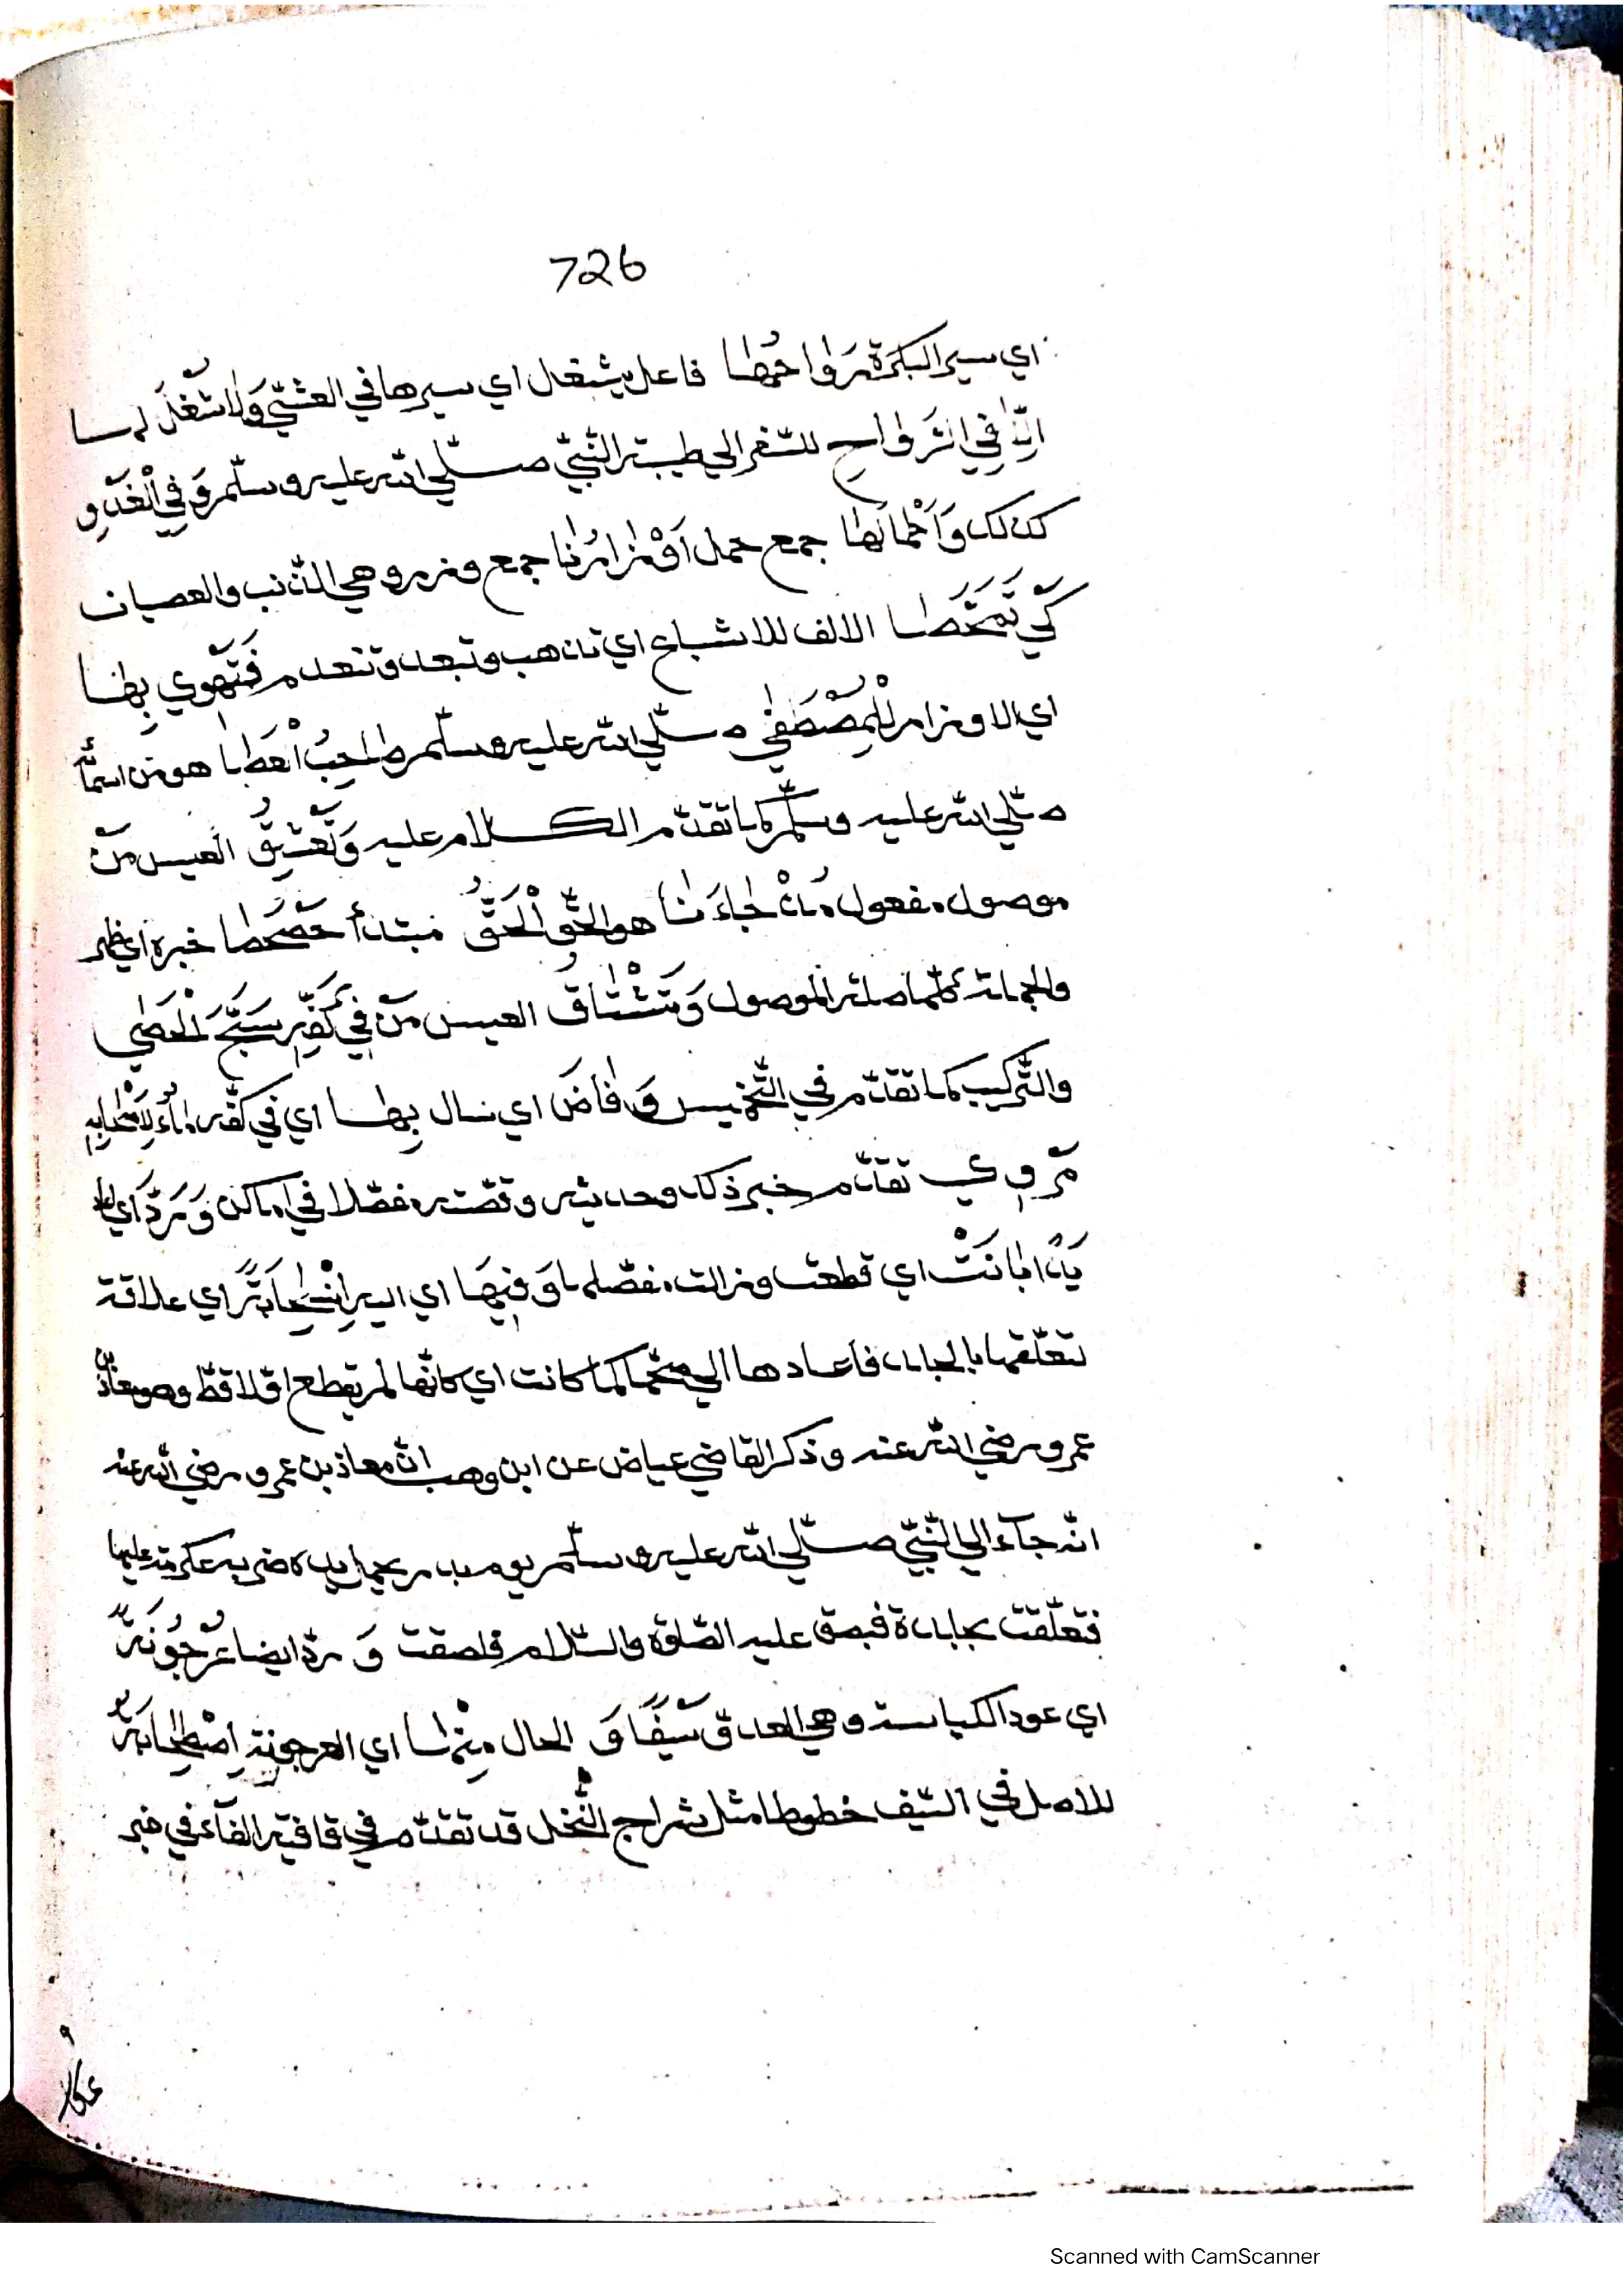 726
اي سير البكرة رَوَاحُهَا فاعل يشغل اي سيرها في العشيّ وَلَا شُغْلَ لها
اِلَّا فِي الرَّوَاحِ للسّفر الي طيبة النّبيّ صلّي الله عليه وسلّم وَفِي الْغُدُوِ
كذلك وَاَحْمَالُهَا جمع حمل اَوْزَارُنَا جمع وزر وهي الذّنب والعصيان
كَيْ تَمَحَّصَا الالف للاشباع اي تذهب وتبعد وتنعدم فَتَهْوِي بِهَا
اي الاوزار لِلْمُصْطَفٰي صلّي الله عليه وسلّم صَاحِبُ الْعَصَا هو من اسمائه
صلّي الله عليه وسلّم كما تقدّم الكلام عليه وَتَعْشِقُ العيس مَنْ
موصول مفعول مُذْ جَاءَنَا هو الحقّ الْحَقُّ مبتدأ حَصْحَصَا خبره اي ظهر
والجملة كلّها صلة الموصول وَتَشْتَاقُ العيس مَنْ فِي كَفِّهِ سَبَّحَ الْحَصٰي
والتّركيب كما تقدّم في التّخميس وَفَاضَ اي سال بِهَا اي في كفّه الماءُ لِاَصْحَابِهِ
مَرْوِي تقدّم خبر ذلك وحديثه وقصّته مفصّلا في اماكن وَرَدَّ اي
يَدًا بَانَتْ اي قطعت وزالت مفصّلها وَفِيهَا اي اليد اِنْسِحَابَةً اي علاقة
لتعلّقها بالجلد فاعادها الي صحّتها كما كانت اي كانّها لم يقطع اوّلا قطّ وهو معاذ بن
عمرو رضي الله عنه وذكر القاضي عياض عن ابن وهب انّ معاذ بن عمرو رضي الله عنه
انّه جآء الي النّبيّ صلّي الله عليه وسلّم يوم بدر يحمل يده ضربه عكرمة عليها
فتعلّقت بجلدة فبصق عليه الصّلوة والسّلام فلصقت وَ ردّ ايضا عُرْجُونَةً
اي عود الكباسة وهي العدق سَيْفًا وَ الحال مِنْهَا اي العرجونة اِصْطِحَابَةٌ
للاصل في السّيف خطوطا مثل شراج النّخل قد تقدّم في قافية الفآء في خبر